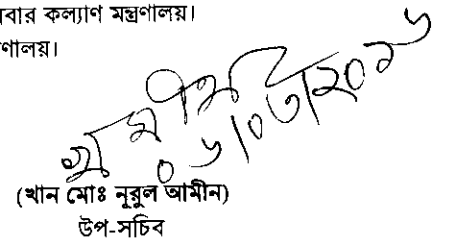 বার কল্যাণ মন্ত্রণালয়।
ণালয়।
০৬/০৩/২০১৬
(খান মোঃ নূরুল আমীন)
উপ-সচিব